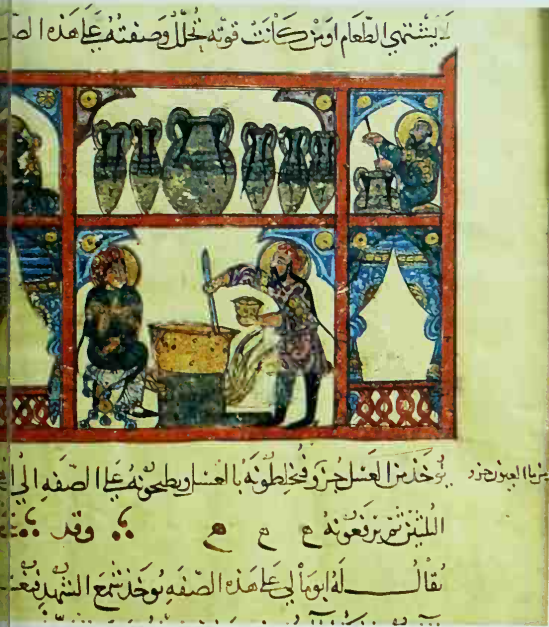 لا يشتهي الطعام او من كانت قوته تحلل وصفته على هذه الصـ
يوخذ من العسل جزو فيخلطونه با العسل ويطبخونه على الصفه الي
الثلثين ثم يرفعونه وقد
يقال له ابو مالي على هذه الصفه يوخذ شمع الشهد فيغـ